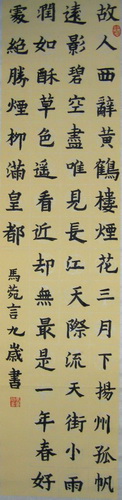 故人西辭黃鶴樓煙花三月下揚州孤帆
遠影碧空盡唯見長江天際流天街小雨
潤如酥草色遙看近却無最是一年春好
處絕勝煙柳滿皇都
馬苑言九歲書